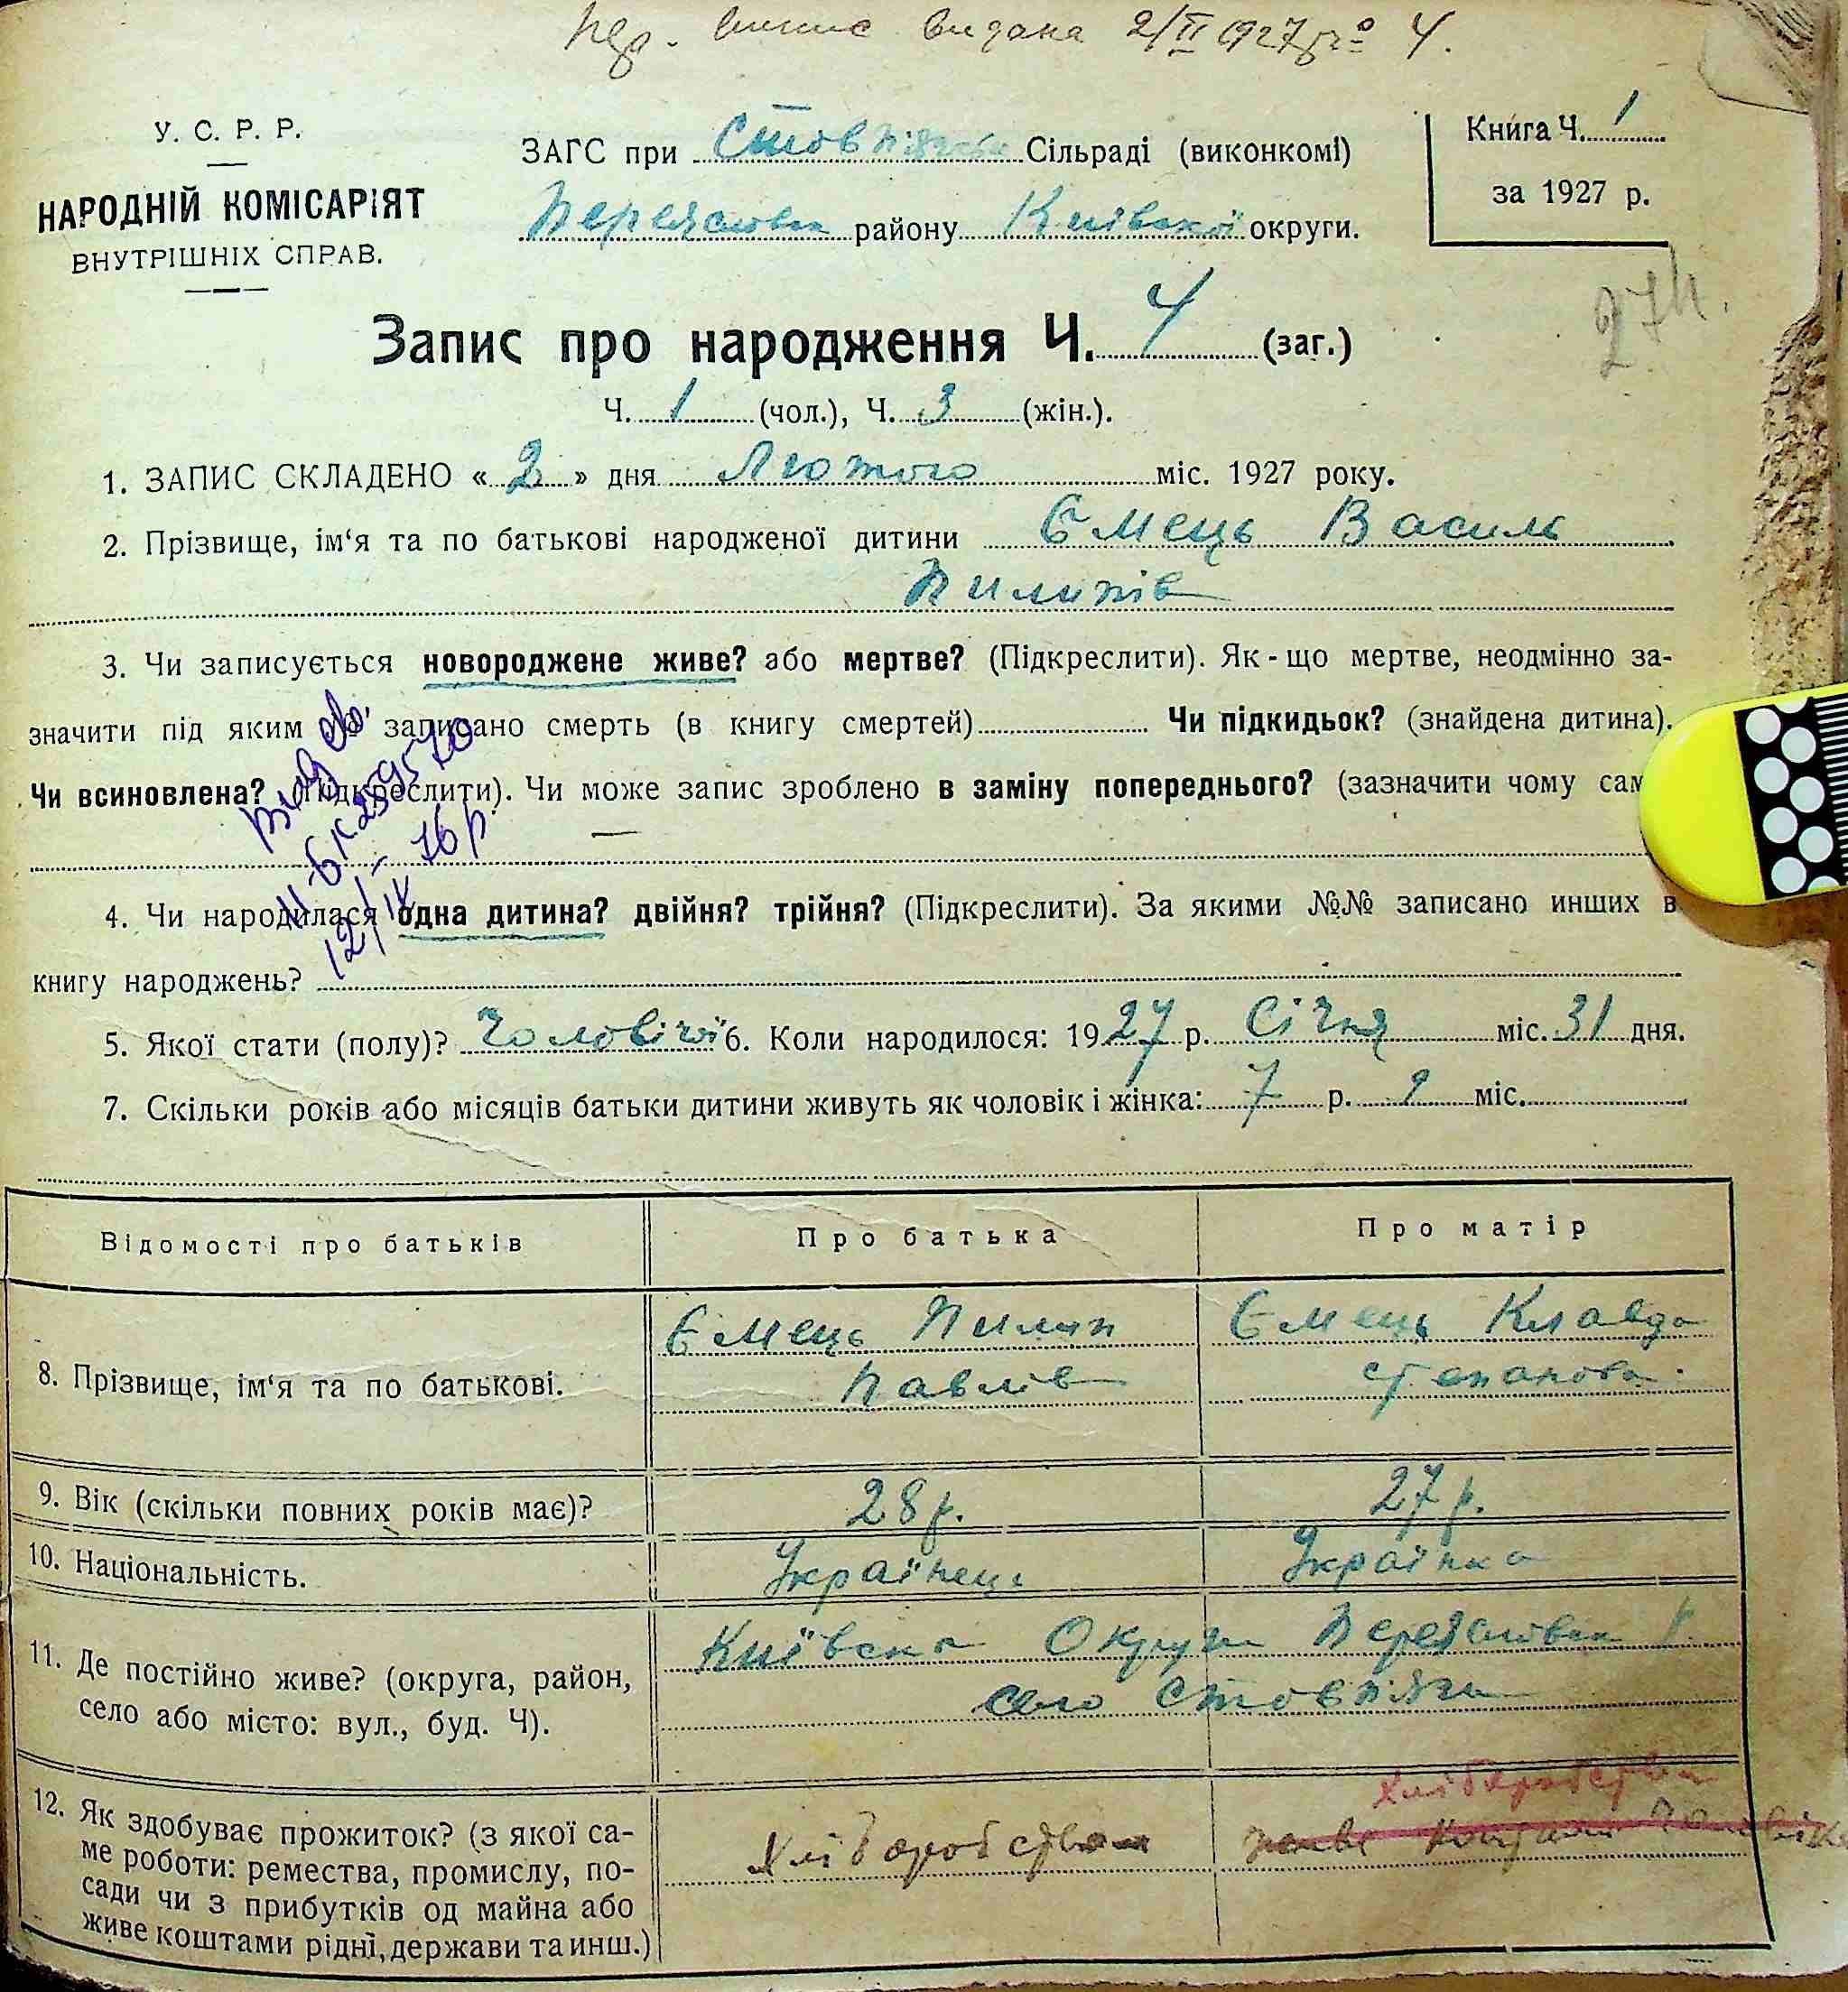 виписка видана 2/II 1927 р. № 4.
У. С. Р. Р.
НАРОДНІЙ КОМІСАРІЯТ
ВНУТРІШНІХ СПРАВ.
ЗАГС при Стовп'язькі Сільраді (виконкомі)
Переяслівськ району Київської округи.
Книга Ч. 1
за 1927 р.
27
Запис про народження Ч. 4 (заг.)
Ч. 1 (чол.), Ч. 3 (жін.).
1. ЗАПИС СКЛАДЕНО « 2 » дня Лютого міс. 1927 року.
2. Прізвище, ім‘я та по батькові народженої дитини Ємець Василь
Пилипів
3. Чи записується новороджене живе? або мертве? (Підкреслити). Як-що мертве, неодмінно за-
значити під яким № записано смерть (в книгу смертей) Чи підкидьок? (знайдена дитина).
Чи всиновлена? (Підкреслити). Чи може запис зроблено в заміну попереднього? (зазначити чому сам
—
Видано св.
II-БК 259570
12/IX-76 р
4. Чи народилася одна дитина? двійня? трійня? (Підкреслити). За якими №№ записано инших в
книгу народжень?
5. Якої стати (полу)? Чоловічої 6. Коли народилося: 1927 р. Січня міс. 31 дня.
7. Скільки років або місяців батьки дитини живуть як чоловік і жінка: 7 р. міс.
Відомості про батьків
Про батька
Про матір
8. Прізвище, ім‘я та по батькові.
Ємець Пилип
Павлів
Ємець Клавда
Степанова.
9. Вік (скільки повних років має)?
28 р.
27 р.
10. Національність.
Українець
Українка
11. Де постійно живе? (округа, район,
село або місто: вул., буд. Ч).
Київська Округа Переяслівськ р.
село Стовп'яги
12. Як здобуває прожиток? (з якої са-
ме роботи: ремества, промислу, по-
сади чи з прибутків од майна або
живе коштами рідні, держави та инш.)
Хліборобством
Хліборобством
живе коштами чоловіка